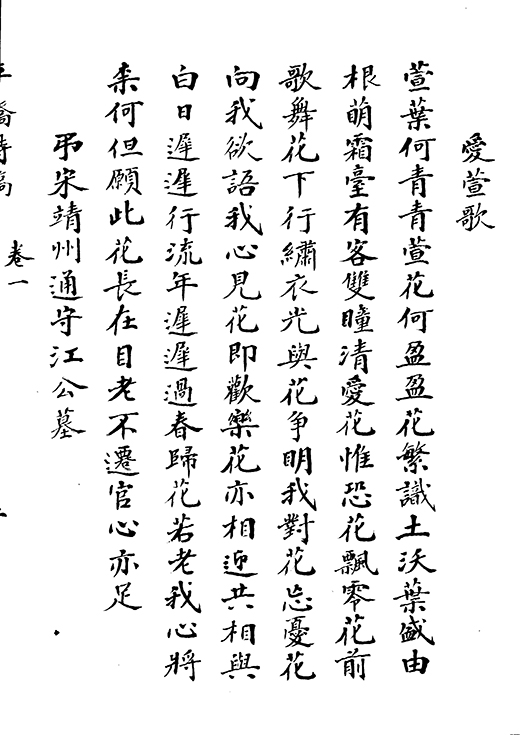 愛萱歌
萱葉何青青萱花何盈盈花繁識土沃葉盛由
根萌霜臺有客雙瞳清愛花惟恐花飄零花前
歌舞花下行繡衣光與花争明我對花忘憂花
向我欲語我心見花即歡樂花亦相迎共相與
白日遲遲行流年遲遲過春歸花若老我心將
柰何但願此花長在目老不遷官心亦足
弔宋靖州通守江公墓
平橋詩稿
卷一